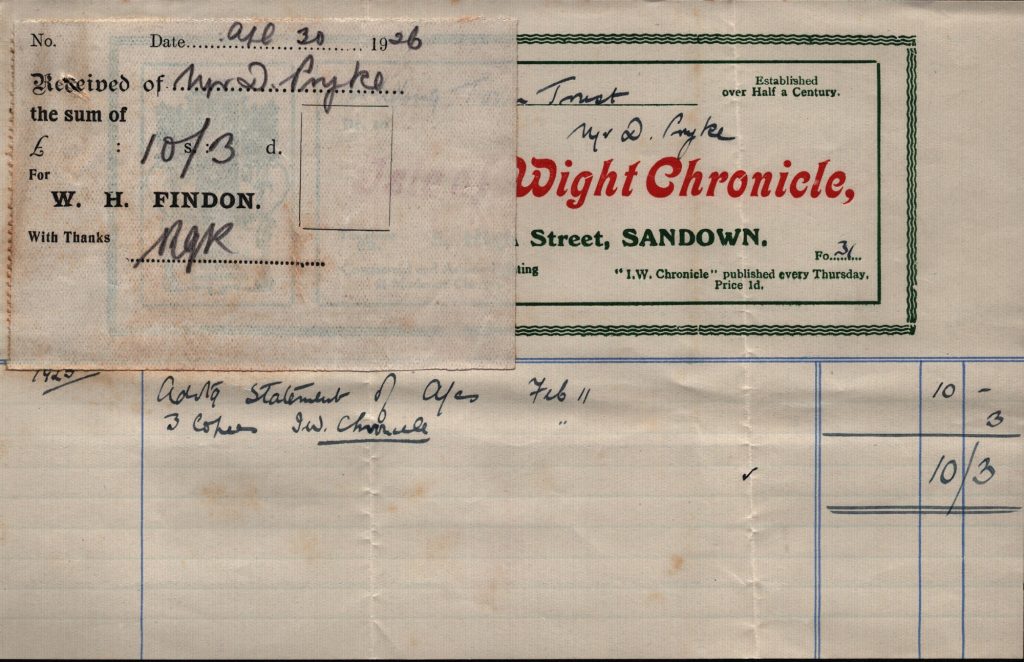 No. Date Apl 30 1926
Received of Mr D. Pryke
the sum of
£ : 10/s.:3 d.
For
W. H. FINDON.
With Thanks RGK
Trust
Established
over Half a Century.
Mr D. Pryke
Wight Chronicle,
Street, SANDOWN.
Fo. 31
ting
"I.W. Chronicle" published every Thursday.
Price 1d.
1925
Advtg Statement of A/cs Feb 11 10 -
3 Copies I.W. Chronicle " 3
10/3